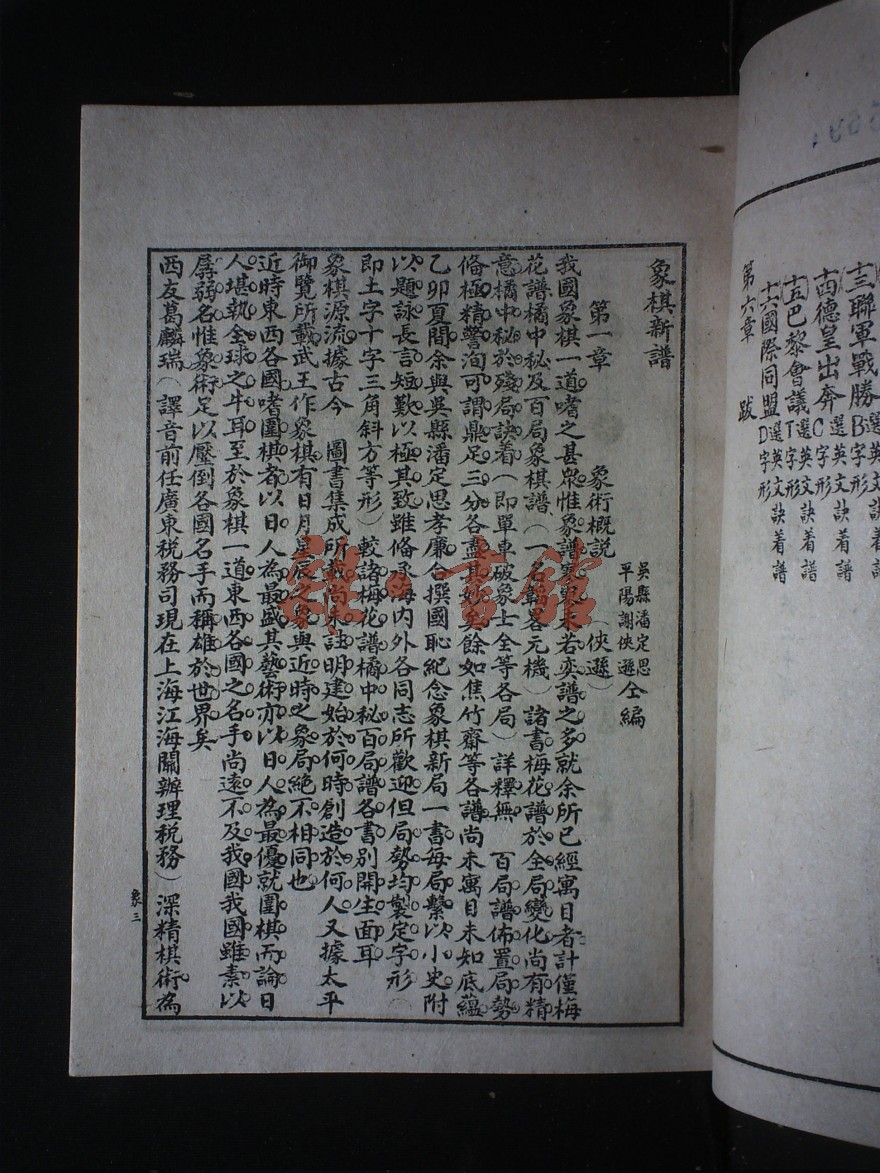 十三聯軍戰勝B字形選英文訣着譜
十四德皇出奔C字形選英文訣着譜
十五巴黎會議T字形選英文訣着譜
十六國際同盟D字形選英文訣着譜
第六章 跋
象棋新譜
吳縣潘定思
平陽謝俠遜 仝編
第一章 象術概説 (俠遜)
我國象棋一道嗜之甚衆惟象譜寥寥不若奕譜之多就余所已經寓目者計僅梅
花譜橘中秘及百局象棋譜(一名韜畧元機)諸書梅花譜於全局變化尚有精
意橘中秘於殘局訣着(即單車破象士全等各局)詳釋無 百局譜佈置局勢
備極精警洵可謂鼎足三分各盡其妙至餘如焦竹齋等各譜尚未寓目未知底蘊
乙卯夏間余與吳縣潘定思孝廉合撰國恥紀念象棋新局一書每局繫以小史附
以題詠長言短歎以極其致雖備承海內外各同志所歡迎但局勢均製定字形(
即土字十字三角斜方等形)較諸梅花譜橘中秘百局譜各書別開生面耳
象棋源流據古今 圖書集成所載尚未註明建始於何時創造於何人又據太平
御覽所載武王作象棋有日月星辰之象與近時之象局絶不相同也
近時東西各國嗜圍棋者以日人為最盛其藝術亦以日人為最優就圍棋而論日
人堪執全球之牛耳至於象棋一道東西各國之名手尚遠不及我國我國雖素以
孱弱名惟象術足以壓倒各國名手而稱雄於世界矣
西友葛麟瑞(譯音前任廣東税務司現在上海江海關辦理税務)深精棋術為
象三
雜·書館